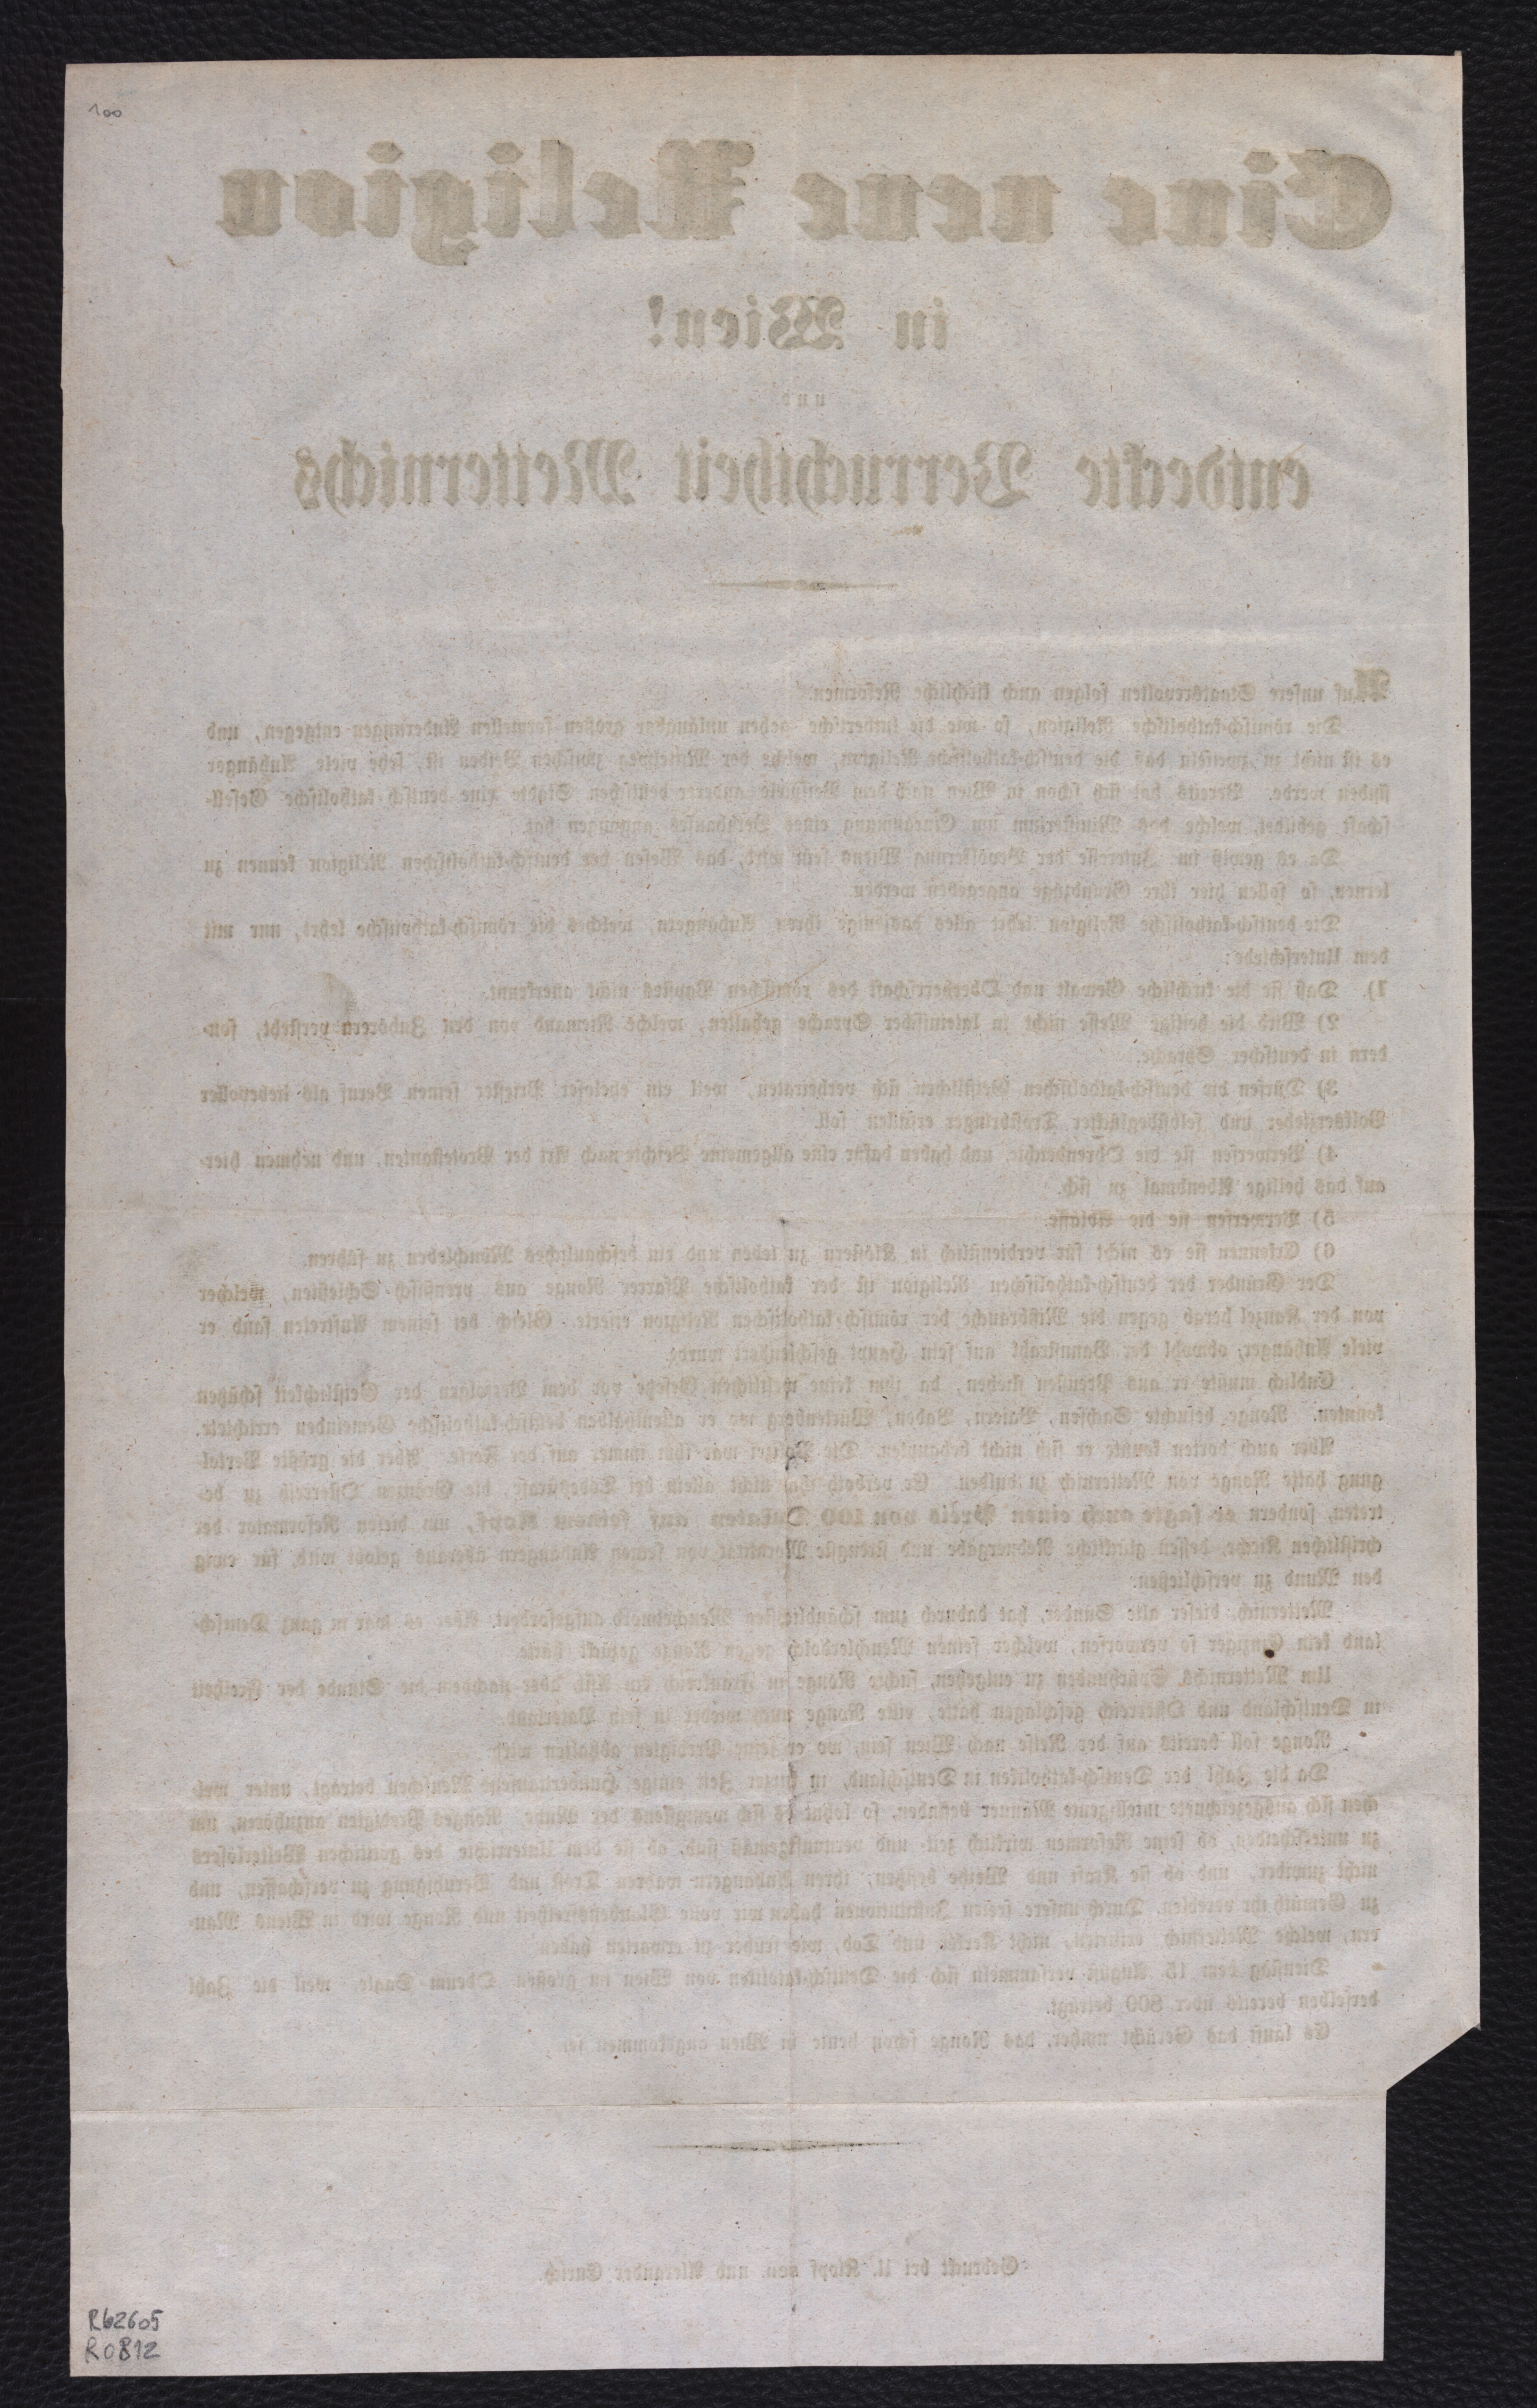 100
Eine neue Religion
in Wien!
und
entdeckte Verruchtheit Metternichs
Auf unsere Staatsrevolten folgen auch kirchliche Reformen.
Die römisch-katholische Religion, so wie die lutherische gehen unläugbar großen formellen Änderungen entgegen, und
es ist nicht zu zweifeln daß die deutsch-katholische Religion, welche der Mittelweg zwischen Beiden ist, sehr viele Anhänger
finden werde. Bereits hat sich schon in Wien nach dem Beispiele anderer deutschen Städte eine deutsch-katholische Gesell-
schaft gebildet, welche das Ministerium um Einräumung eines Bethauses angegangen hat.
Da es gewiß im Interesse der Bevölkerung Wiens sein wird, das Wesen der deutsch-katholischen Religion kennen zu
lernen, so sollen hier ihre Grundzüge angegeben werden.
Die deutsch-katholische Religion lehrt alles dasjenige ihren Anhängern, welches die römisch-katholische lehrt, nur mit
dem Unterschiede:
1) Daß sie die kirchliche Gewalt und Oberherrschaft des römischen Papstes nicht anerkennt.
2) Wird die heilige Messe nicht in lateinischer Sprache gehalten, welche Niemand von den Zuhörern versteht, son-
dern in deutscher Sprache.
3) Dürfen die deutsch-katholischen Geistlichen sich verheiraten, weil ein eheloser Priester seinen Beruf als liebevoller
Volkserzieher und selbstbeglückter Trostbringer erfüllen soll.
4) Verwerfen sie die Ohrenbeichte, und haben dafür eine allgemeine Beichte nach Art der Protestanten, und nehmen hier-
auf das heilige Abendmal zu sich.
5) Verwerfen sie die Ablässe.
6) Erkennen sie es nicht für verdienstlich in Klöstern zu leben und ein beschauliches Mönchleben zu führen.
Der Gründer der deutsch-katholischen Religion ist der katholische Pfarrer Ronge aus preußisch-Schlesien, welcher
von der Kanzel herab gegen die Mißbräuche der römisch-katholischen Religion eiferte. Gleich bei seinem Auftreten fand er
viele Anhänger, obwohl der Bannstrahl auf sein Haupt geschleudert wurde.
Endlich mußte er aus Preußen fliehen, da ihn keine weltlichen Gesetze vor dem Verfolgen der Geistlichkeit schützen
konnten. Ronge besuchte Sachsen, Baiern, Baden, Würtenberg wo er allenthalben deutsch-katholische Gemeinden errichtete.
Aber auch dorten konnte er sich nicht behaupten. Die Polizei war ihm immer auf der Ferse. Aber die größte Verfol-
gung hatte Ronge von Metternich zu dulden. Er verboth ihm nicht allein bei Todesstrafe, die Gränzen Österreich zu be-
treten, sondern er sagte auch einen Preis von 100 Dukaten auf seinem Kopf, um diesen Reformator der
christlichen Kirche, dessen glückliche Rednergabe und strengste Moralität von seinen Anhängern überaus gelobt wird, für ewig
den Mund zu verschließen.
Metternich, dieser alte Sünder, hat dadurch zum schändlichsten Meuchelmord aufgefordert. Aber es war in ganz Deutsch-
land kein Einziger so verworfen, welcher seinen Meuchlerdolch gegen Ronge gezückt hätte.
Um Metternichs Spürhunden zu entgehen, suchte Ronge in Frankreich ein Asil, aber nachdem die Stunde der Freiheit
in Deutschland und Österreich geschlagen hatte, eilte Ronge auch wieder in sein Vaterland.
Ronge soll bereits auf der Reise nach Wien sein, wo er seine Predigten abhalten wird.
Da die Zahl der Deutsch-katholiken in Deutschland, in kurzer Zeit einige Hunderttausend Menschen beträgt, unter wel-
chen sich ausgezeichnete intelligente Männer befinden, so lohnt es sich wenigstens der Mühe, Ronges Predigten anzuhören, um
zu unterscheiden, ob seine Reformen wirklich zeit- und vernunftgemäß sind, ob sie dem Unterrichte des göttlichen Welterlösers
nicht zuwider, und ob sie Kraft und Weihe besitzen, ihren Anhängern wahren Trost und Beruhigung zu verschaffen, und
zu Gemüth ihr veredlen. Durch unsere freien Institutionen haben wir volle Glaubensfreiheit und Ronge wird in Wiens Mau-
ern, welche Metternich nicht Kerker und Tod, wie früher zu erwarten haben.
Dienstag dem 15. August versammeln sich die Deutsch-katoliken von Wien im großen Odeum Saale, weil die Zahl
derselben bereits über 800 beträgt.
Es läuft das Gerücht umher, das Ronge schon heute in Wien angekommen sei.
Gedruckt bei U. Klopf sen. und Alexander Eurich.
R62605
R0812